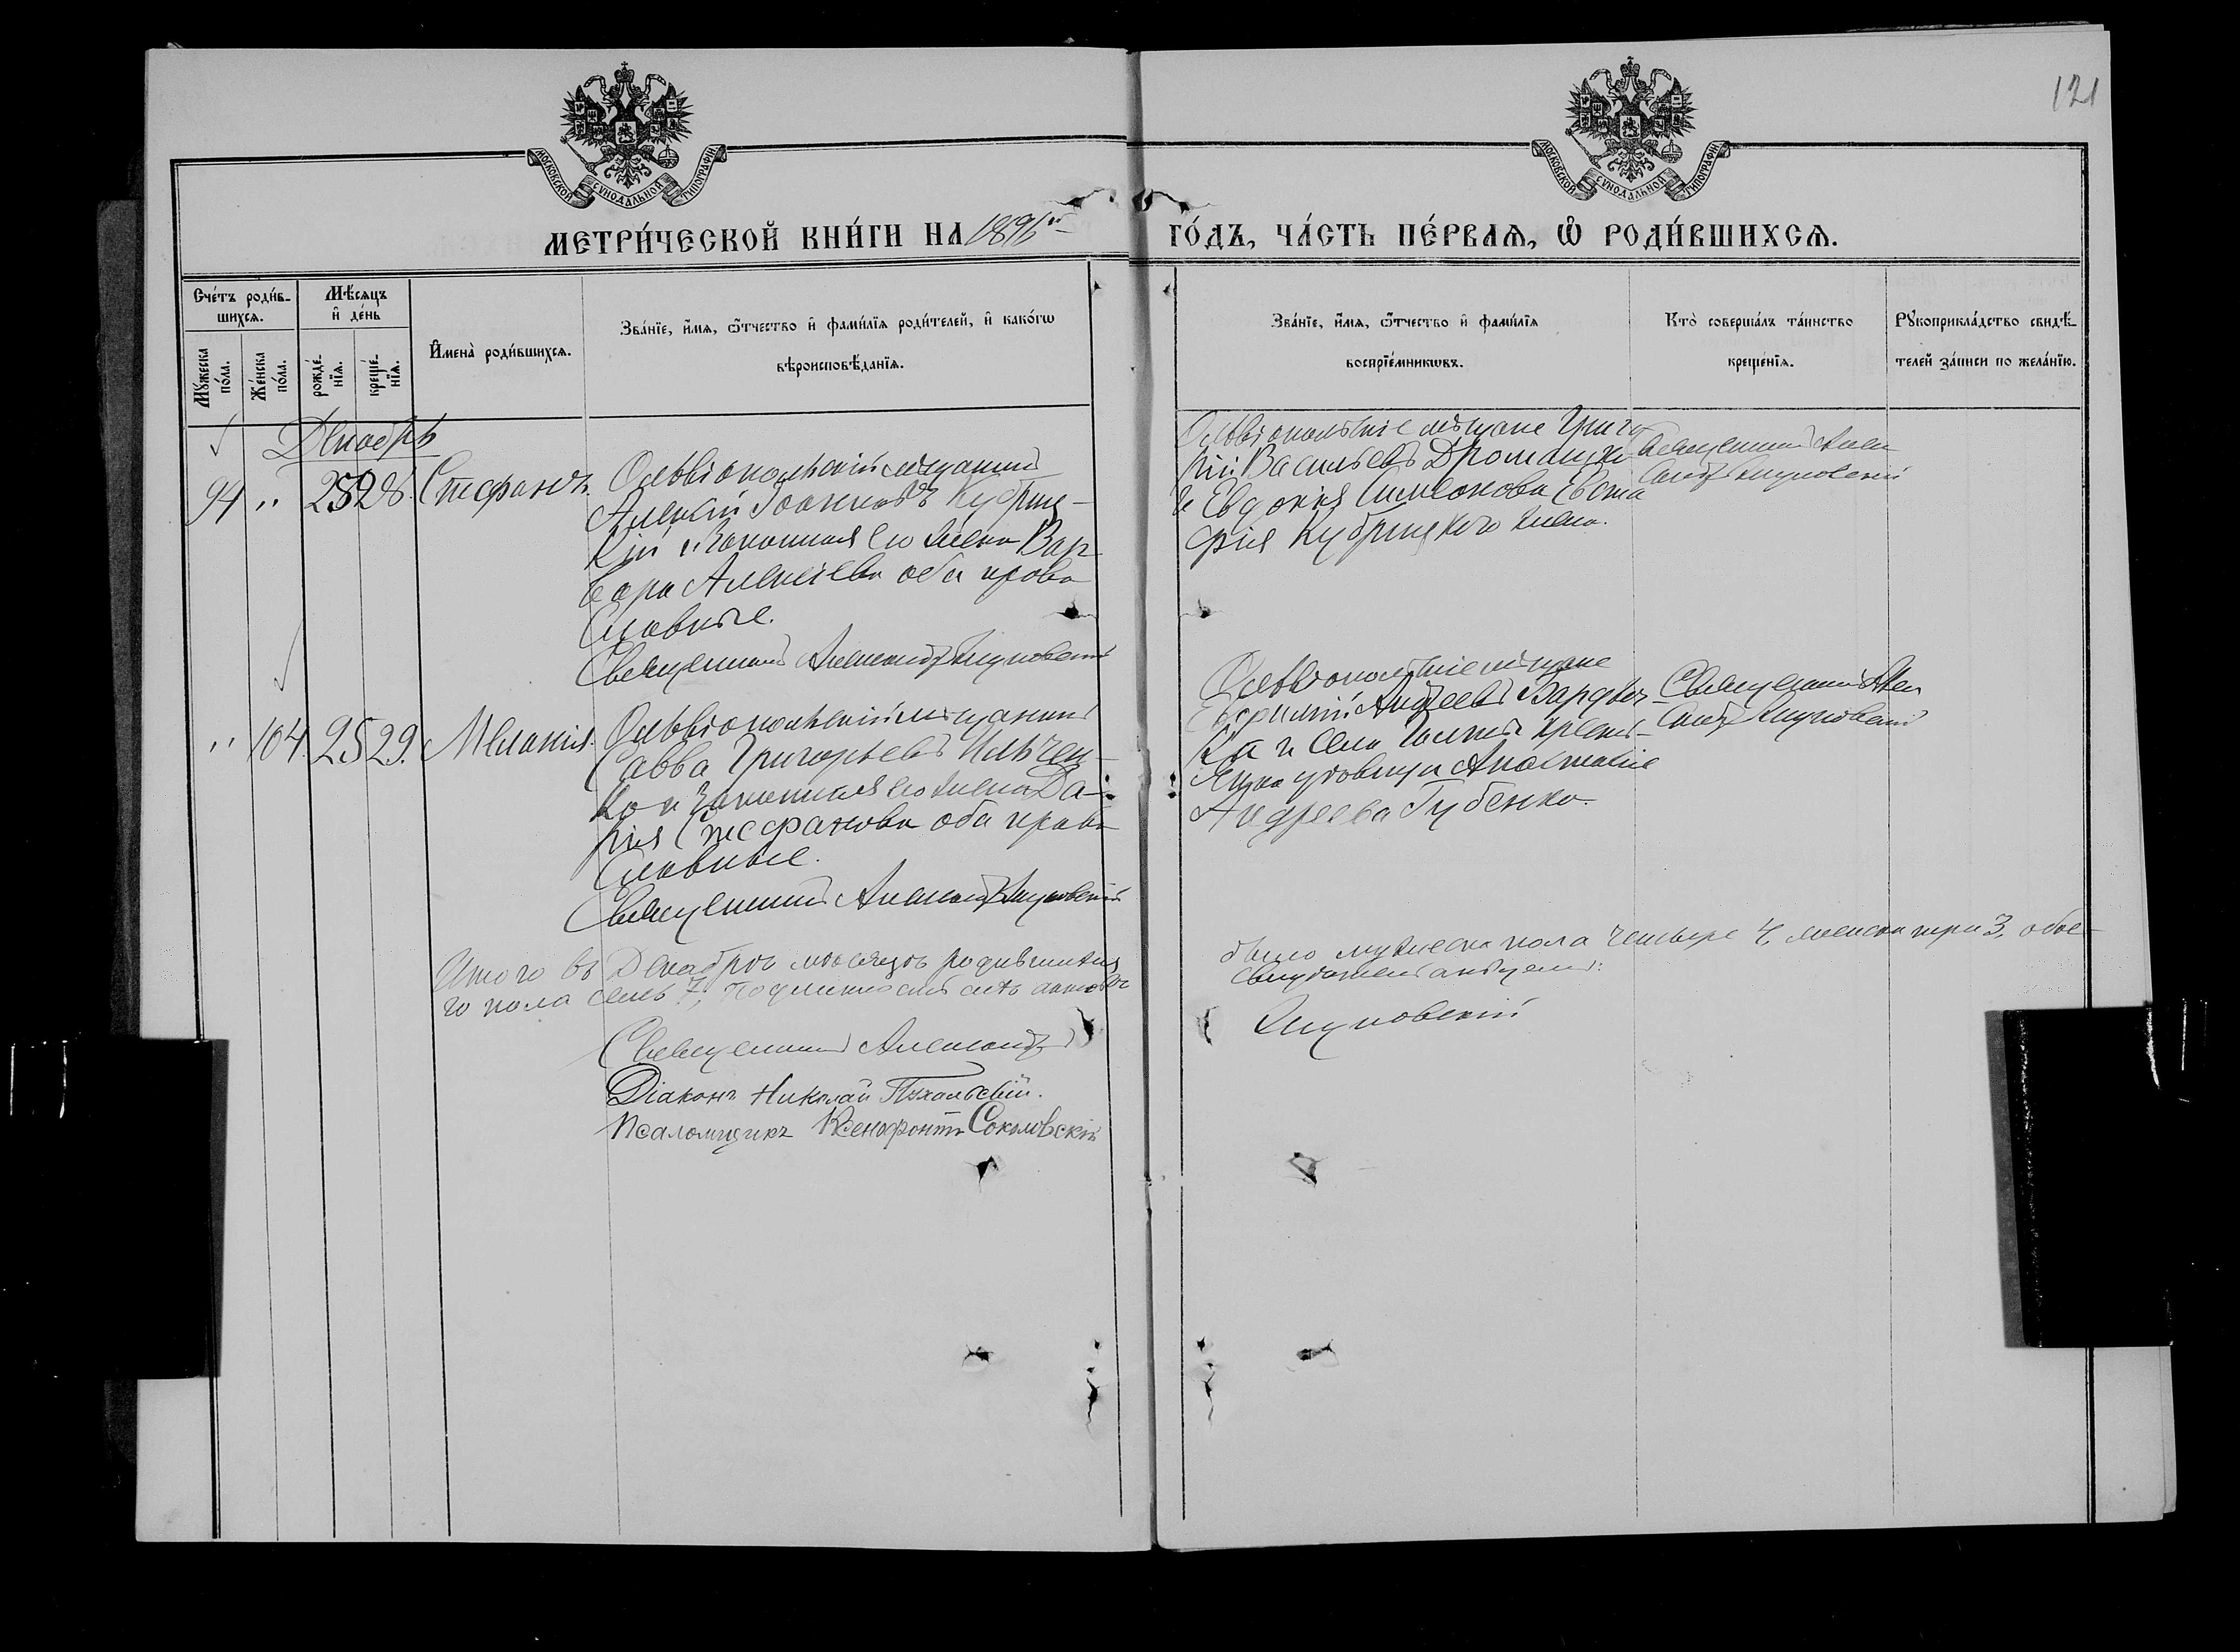 121
МОСКОВСКОЙ СУНОДАЛЬНОЙ ТИПОГРАФІИ
МОСКОВСКОЙ СУНОДАЛЬНОЙ ТИПОГРАФІИ
МЕТРИ́ЧЕСКОЙ КНИ́ГИ НА 1896й ГО́ДЪ, ЧА́СТЬ ПЕ́РВАѦ, Ѽ РОДИ́ВШИХСѦ.
Сче́тъ роди́в-
шихсѧ.
Мѣ́сѧцъ
и҆ де́нь
Мꙋ́жеска
по́ла.
Же́нска
по́ла.
рожде́-
нїѧ.
креще́-
нїѧ.
И҆мена̀ роди́вшихсѧ.
Зва́нїе, и҆́мѧ, ѻ҆́тчество и҆ фами́лїѧ роди́телей, и҆ како́гѡ
вѣроисповѣ́данїѧ.
Зва́нїе, и҆́мѧ, ѻ҆́тчество и҆ фами́лїѧ
воспрїе́мникѡвъ.
Кто̀ соверша́лъ та́инство
креще́нїѧ.
Рꙋкоприкла́дство свидѣ́-
телей за́писи по жела́нїю.
Декабрь
94 " 25 28. Стефанъ.
Ольвіопольскій мѣщанинъ
Алексій Іоанновъ Кубриц-
кій и законная его жена Вар-
вара Алексіева оба право
славные.
Священникъ Александръ
Ольвіопольскіе мѣщане Григо-
рій Васильевъ
и Евдокія Симеонова Евста
фія Кубрицкаго жена.
Священникъ Алек
сандръ
" 104 25 29. Меланія.
Ольвіопольскій мѣщанинъ
Савва Григорьевъ Ильчен-
ко и законная его жена Да-
рія Стефанова оба право
славные.
Священникъ Александръ
Ольвіопольскіе мѣщане
Андреевъ
и села
вдовица Анастасія
Андреева Губенко.
Священникъ Алек
сандръ
Итого въ Декабрѣ мѣсяцѣ родившихся было мужеска пола четыре 4, женска три 3, обое-
го пола семь 7,
Священникъ Александръ
Діаконъ Николай
Псаломщикъ Ксенофонтъ Соколовскій